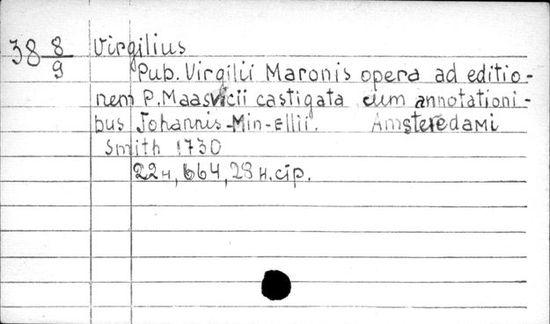 38 8/9 Virgilius
Pub. Virgilii Maronis opera ad editio-
nem P. Maasvicii castigata cum annotationi-
bus Johannis-Min-Ellii. Amsteredami
Smith 1730
22н, 664, 28 н.стр.